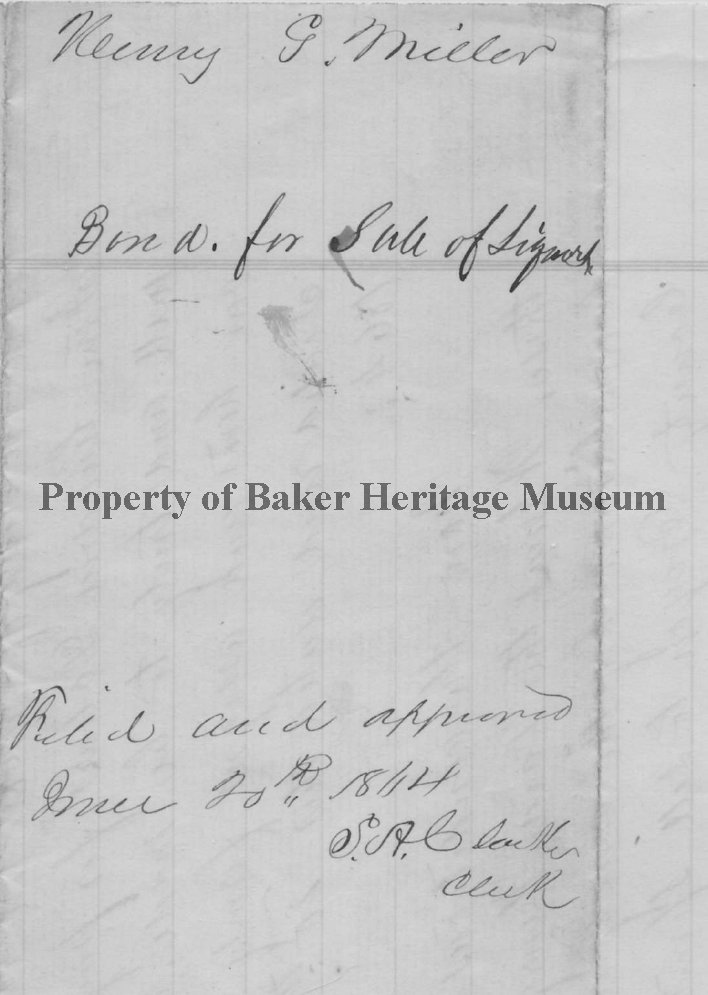 Henry G. Miller
Bond. for Sale of Liquors
Property of Baker Heritage Museum
Filed and approved
June 20th 1864
S. A. Clarke
Clerk